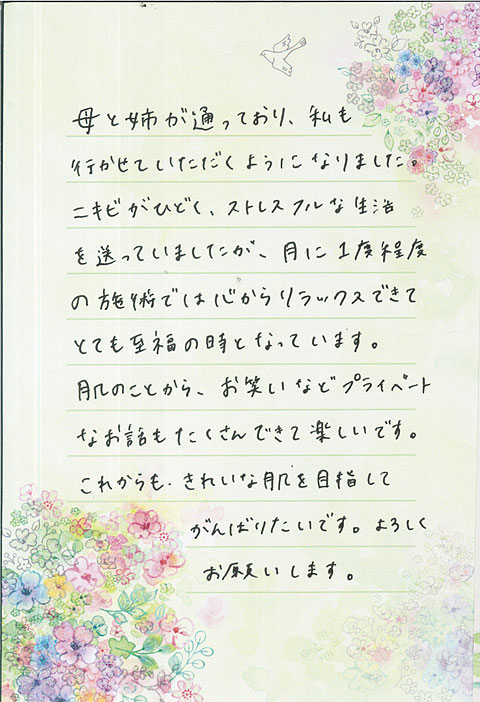 母と姉が通っており、私も
行かせていただくようになりました。
ニキビがひどく、ストレスフルな生活
を送っていましたが、月に1度程度
の施術では心からリラックスできて
とても至福の時となっています。
肌のことから、お笑いなどプライベート
なお話もたくさんできて楽しいです。
これからも、きれいな肌を目指して
がんばりたいです。よろしく
お願いします。